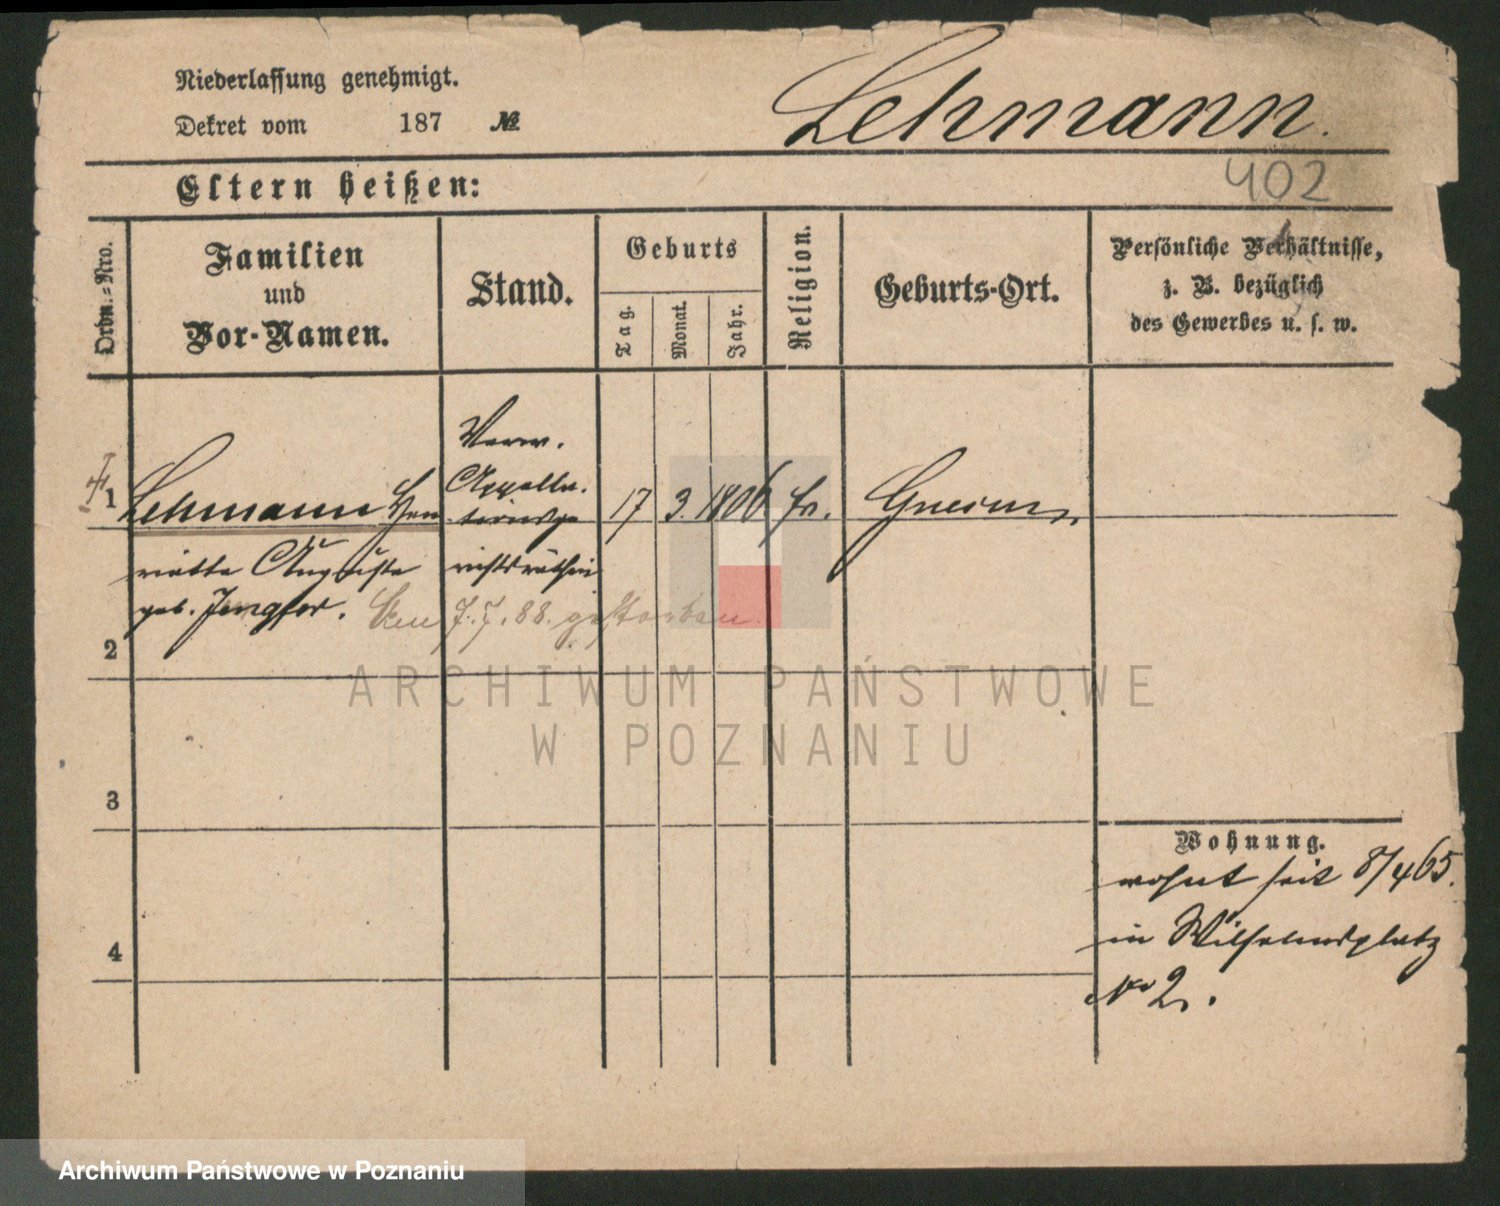 Niederlassung genehmigt.
Dekret vom 187 №
Lehmann.
402
Eltern heißen:
Ordn.-Nro.
Familien
und
Vor-Namen.
Stand.
Geburts
Tag.
Monat.
Jahr.
Religion.
Geburts-Ort.
Persönliche Verhältnisse,
z. B. bezüglich
des Gewerbes u. s. w.
1
Lehmann Hen
riette Auguste
geb.
Verw.
Appella.
tionsge
richtsräthin
17
3.
1806
Gnesen
7.7.88. gestorben.
2
3
4
Wohnung.
wohnt seit 8/4 65.
in Wilhelmsplatz
No 2.
ARCHIWUM PAŃSTWOWE
W POZNANIU
Archiwum Państwowe w Poznaniu